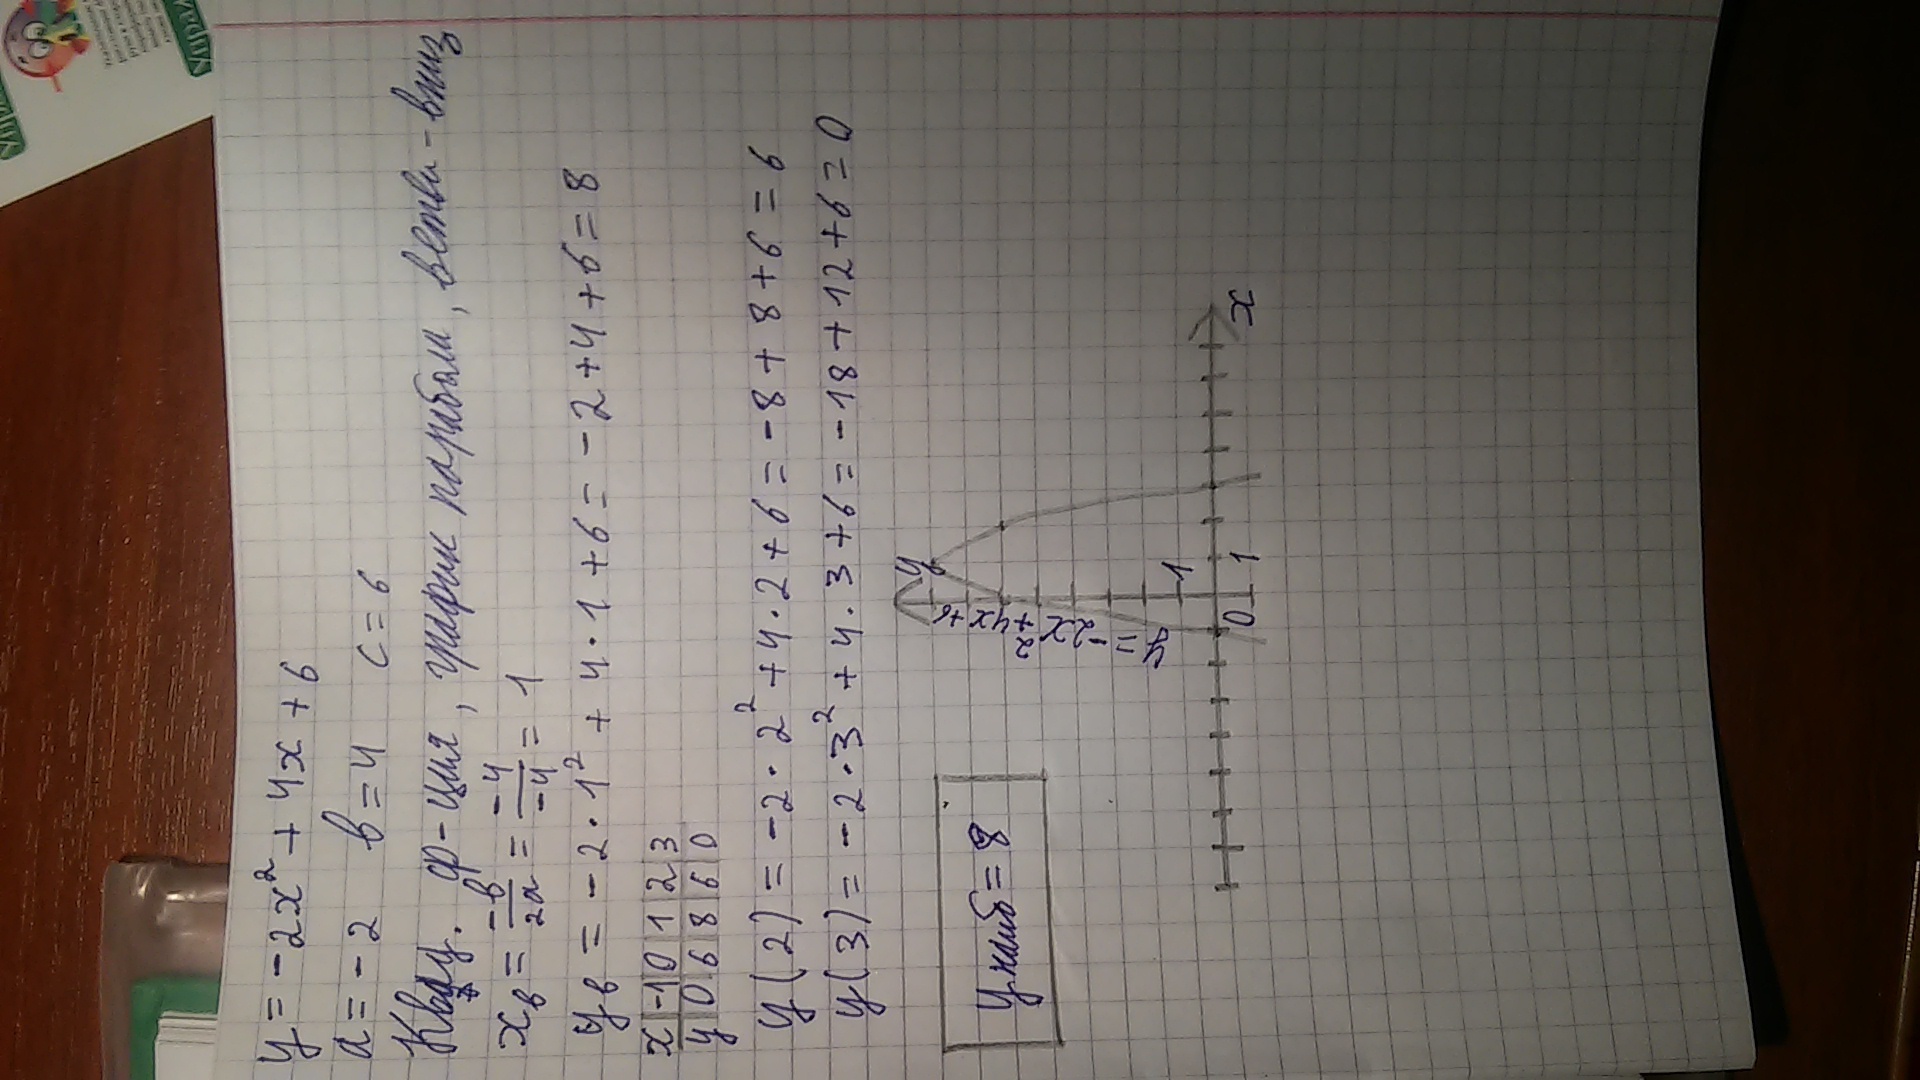 y = -2x² + 4x + 6
a = -2 в = 4 c = 6
Квад. ф-ция, график парабола, ветви - вниз
xв = -в/2a = -4/-4 = 1
yв = -2 · 1² + 4 · 1 + 6 = -2 + 4 + 6 = 8
x -1 0 1 2 3
y 0 6 8 6 0
y(2) = -2 · 2² + 4 · 2 + 6 = -8 + 8 + 6 = 6
y(3) = -2 · 3² + 4 · 3 + 6 = -18 + 12 + 6 = 0
yнаиб = 8
y
y = -2x² + 4x + 6
1
0 1
x